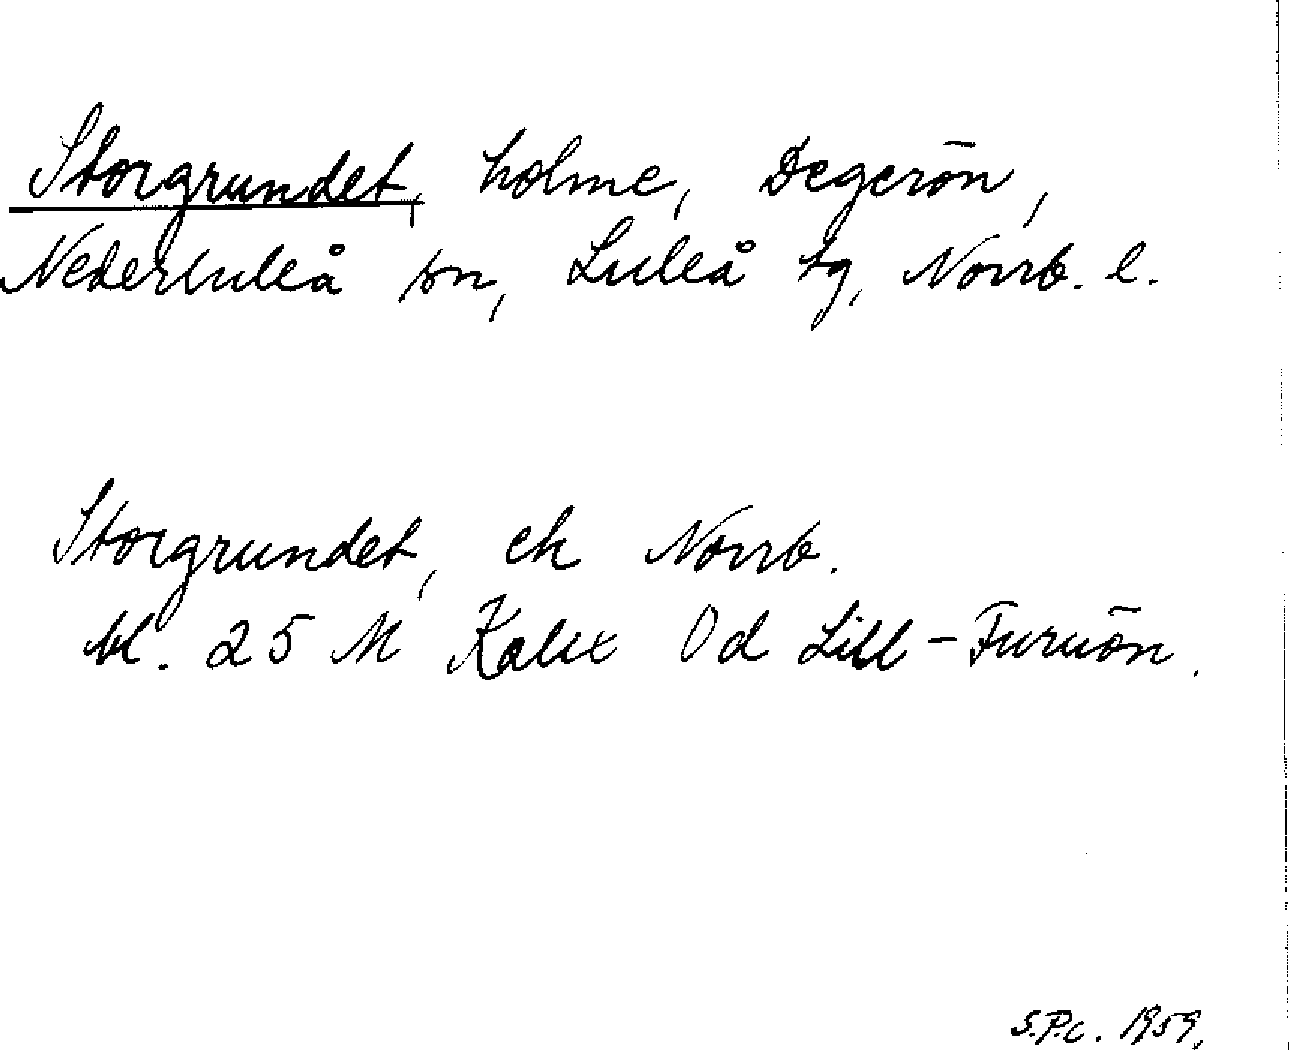 Storgrundet, holme, Degerön,
Nederluleå sn, Luleå tg, Norrb. l.
Storgrundet, ek Norrb.
bl. 25 M Kalix Od Lill-Furuön.
S.P.c. 1959,